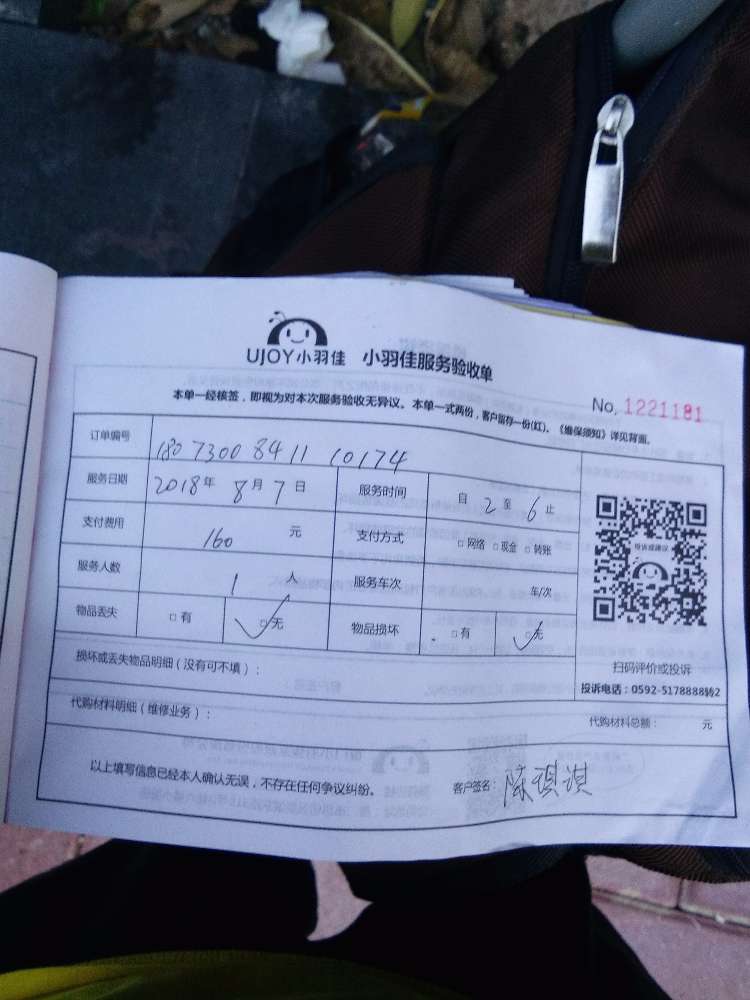 UJOY小羽佳 小羽佳服务验收单
No. 1221181
本单一经核签，即视为对本次服务验收无异议。本单一式两份，客户留存一份(红)。《维保须知》详见背面。
订单编号 1807300841110174
服务日期 2018年8月7日 服务时间 自2至6止
支付费用 160 元 支付方式 □网络 □现金 □转账
服务人数 1人 服务车次 车/次
物品丢失 □有 □无 物品损坏 □有 □无
投诉或建议
扫码评价或投诉
投诉电话：0592-5178888转2
损坏或丢失物品明细（没有可不填）：
代购材料明细（维修业务）： 代购材料总额： 元
以上填写信息已经本人确认无误，不存在任何争议纠纷。 客户签名：陈琪淇